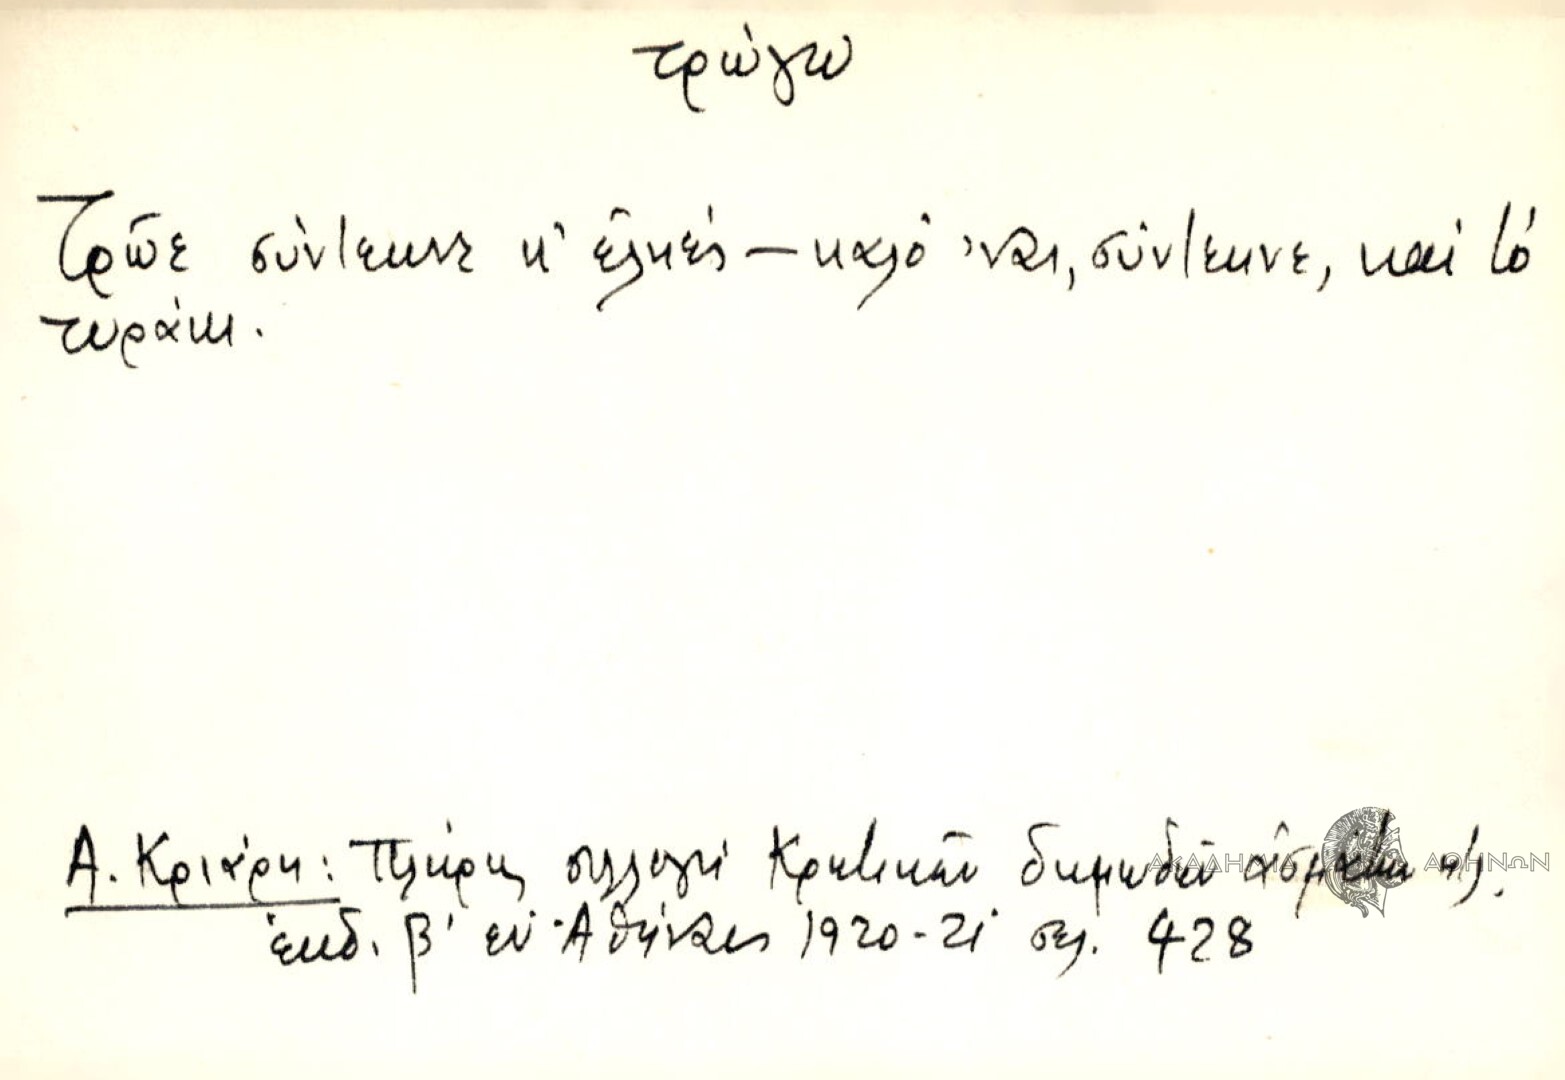 τρώγω
Τρῶε σύντεκνε κ' ἐληές – καλὸ 'ναι, σύντεκνε, καί τό
τυράκι.
Α. Κριάρη: Πλήρης συλλογή Κρητικῶν δημωδῶν ᾀσμάτων κλ.
ἔκδ. β' ἐν Ἀθήναις 1920-21 σελ. 428
ΑΚΑΔΗΜΙΑ ΑΘΗΝΩΝ